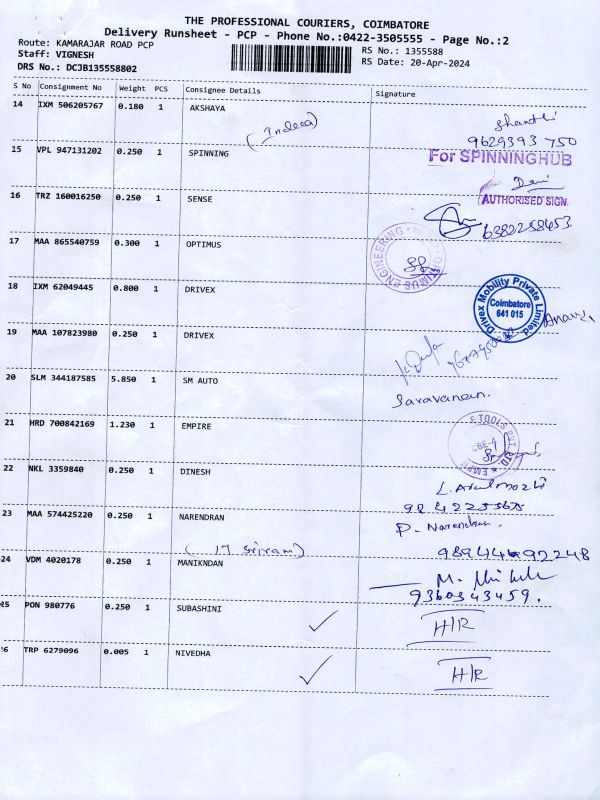 THE PROFESSIONAL COURIERS, COIMBATORE
Delivery Runsheet - PCP - Phone No.:0422-3505555 - Page No.:2
Route: KAMARAJAR ROAD PCP
RS No.: 1355588
Staff: VIGNESH
RS Date: 20-Apr-2024
DRS No.: DCJB135558802
S No Consignment No Weight PCS Consignee Details Signature
14 IXM 506205767 0.180 1 AKSHAYA
Shanthi
9629393 750
15 VPL 947131202 0.250 1 SPINNING
For SPINNINGHUB
AUTHORISED SIGN.
16 TRZ 160016250 0.250 1 SENSE
6382258453
17 MAA 865540759 0.300 1 OPTIMUS
18 IXM 62049445 0.800 1 DRIVEX
Drivex Mobility Private Limited
Coimbatore
641 015
19 MAA 107823980 0.250 1 DRIVEX
20 SLM 344187585 5.850 1 SM AUTO
Saravanan.
21 HRD 700842169 1.230 1 EMPIRE
22 NKL 3359840 0.250 1 DINESH
23 MAA 574425220 0.250 1 NARENDRAN
P. Narendran.
24 VDM 4020178 0.250 1 MANIKNDAN
9360343459.
25 PON 980776 0.250 1 SUBASHINI
H/R
26 TRP 6279096 0.005 1 NIVEDHA
H/R